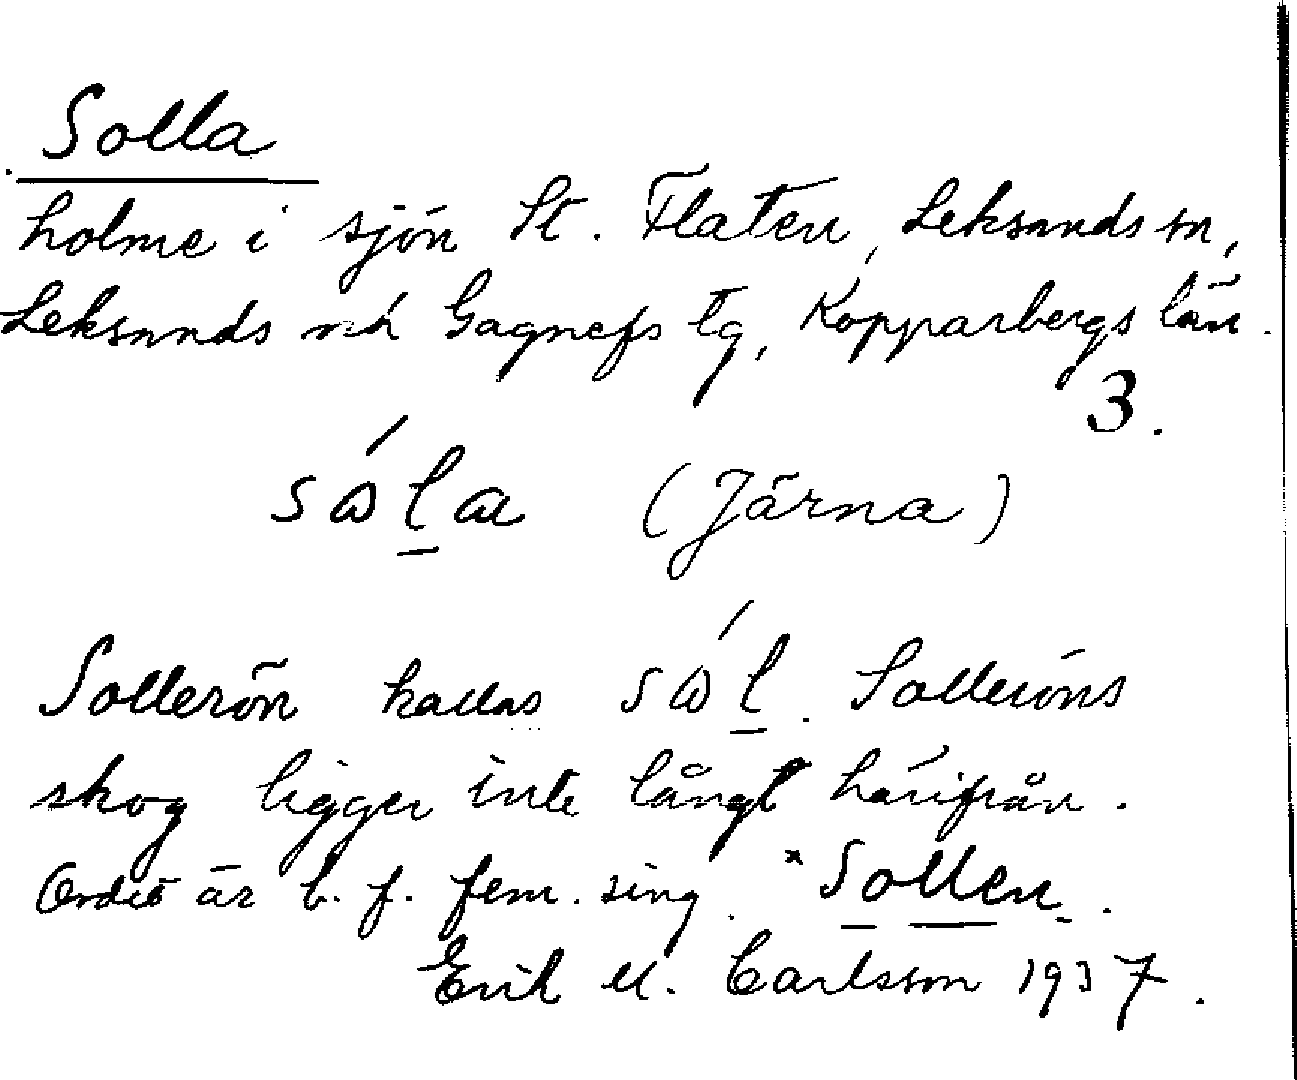 Solla
holme i sjön St. Flaten, Leksands sn,
Leksands och Gagnefs tg, Kopparbergs län.
3.
(Järna)
Sollerön kallas Solleröns
skog ligger inte långt härifrån.
Ordet är b. f. fem. sing. *Sollen.
Erik M. Carlsson 1937.